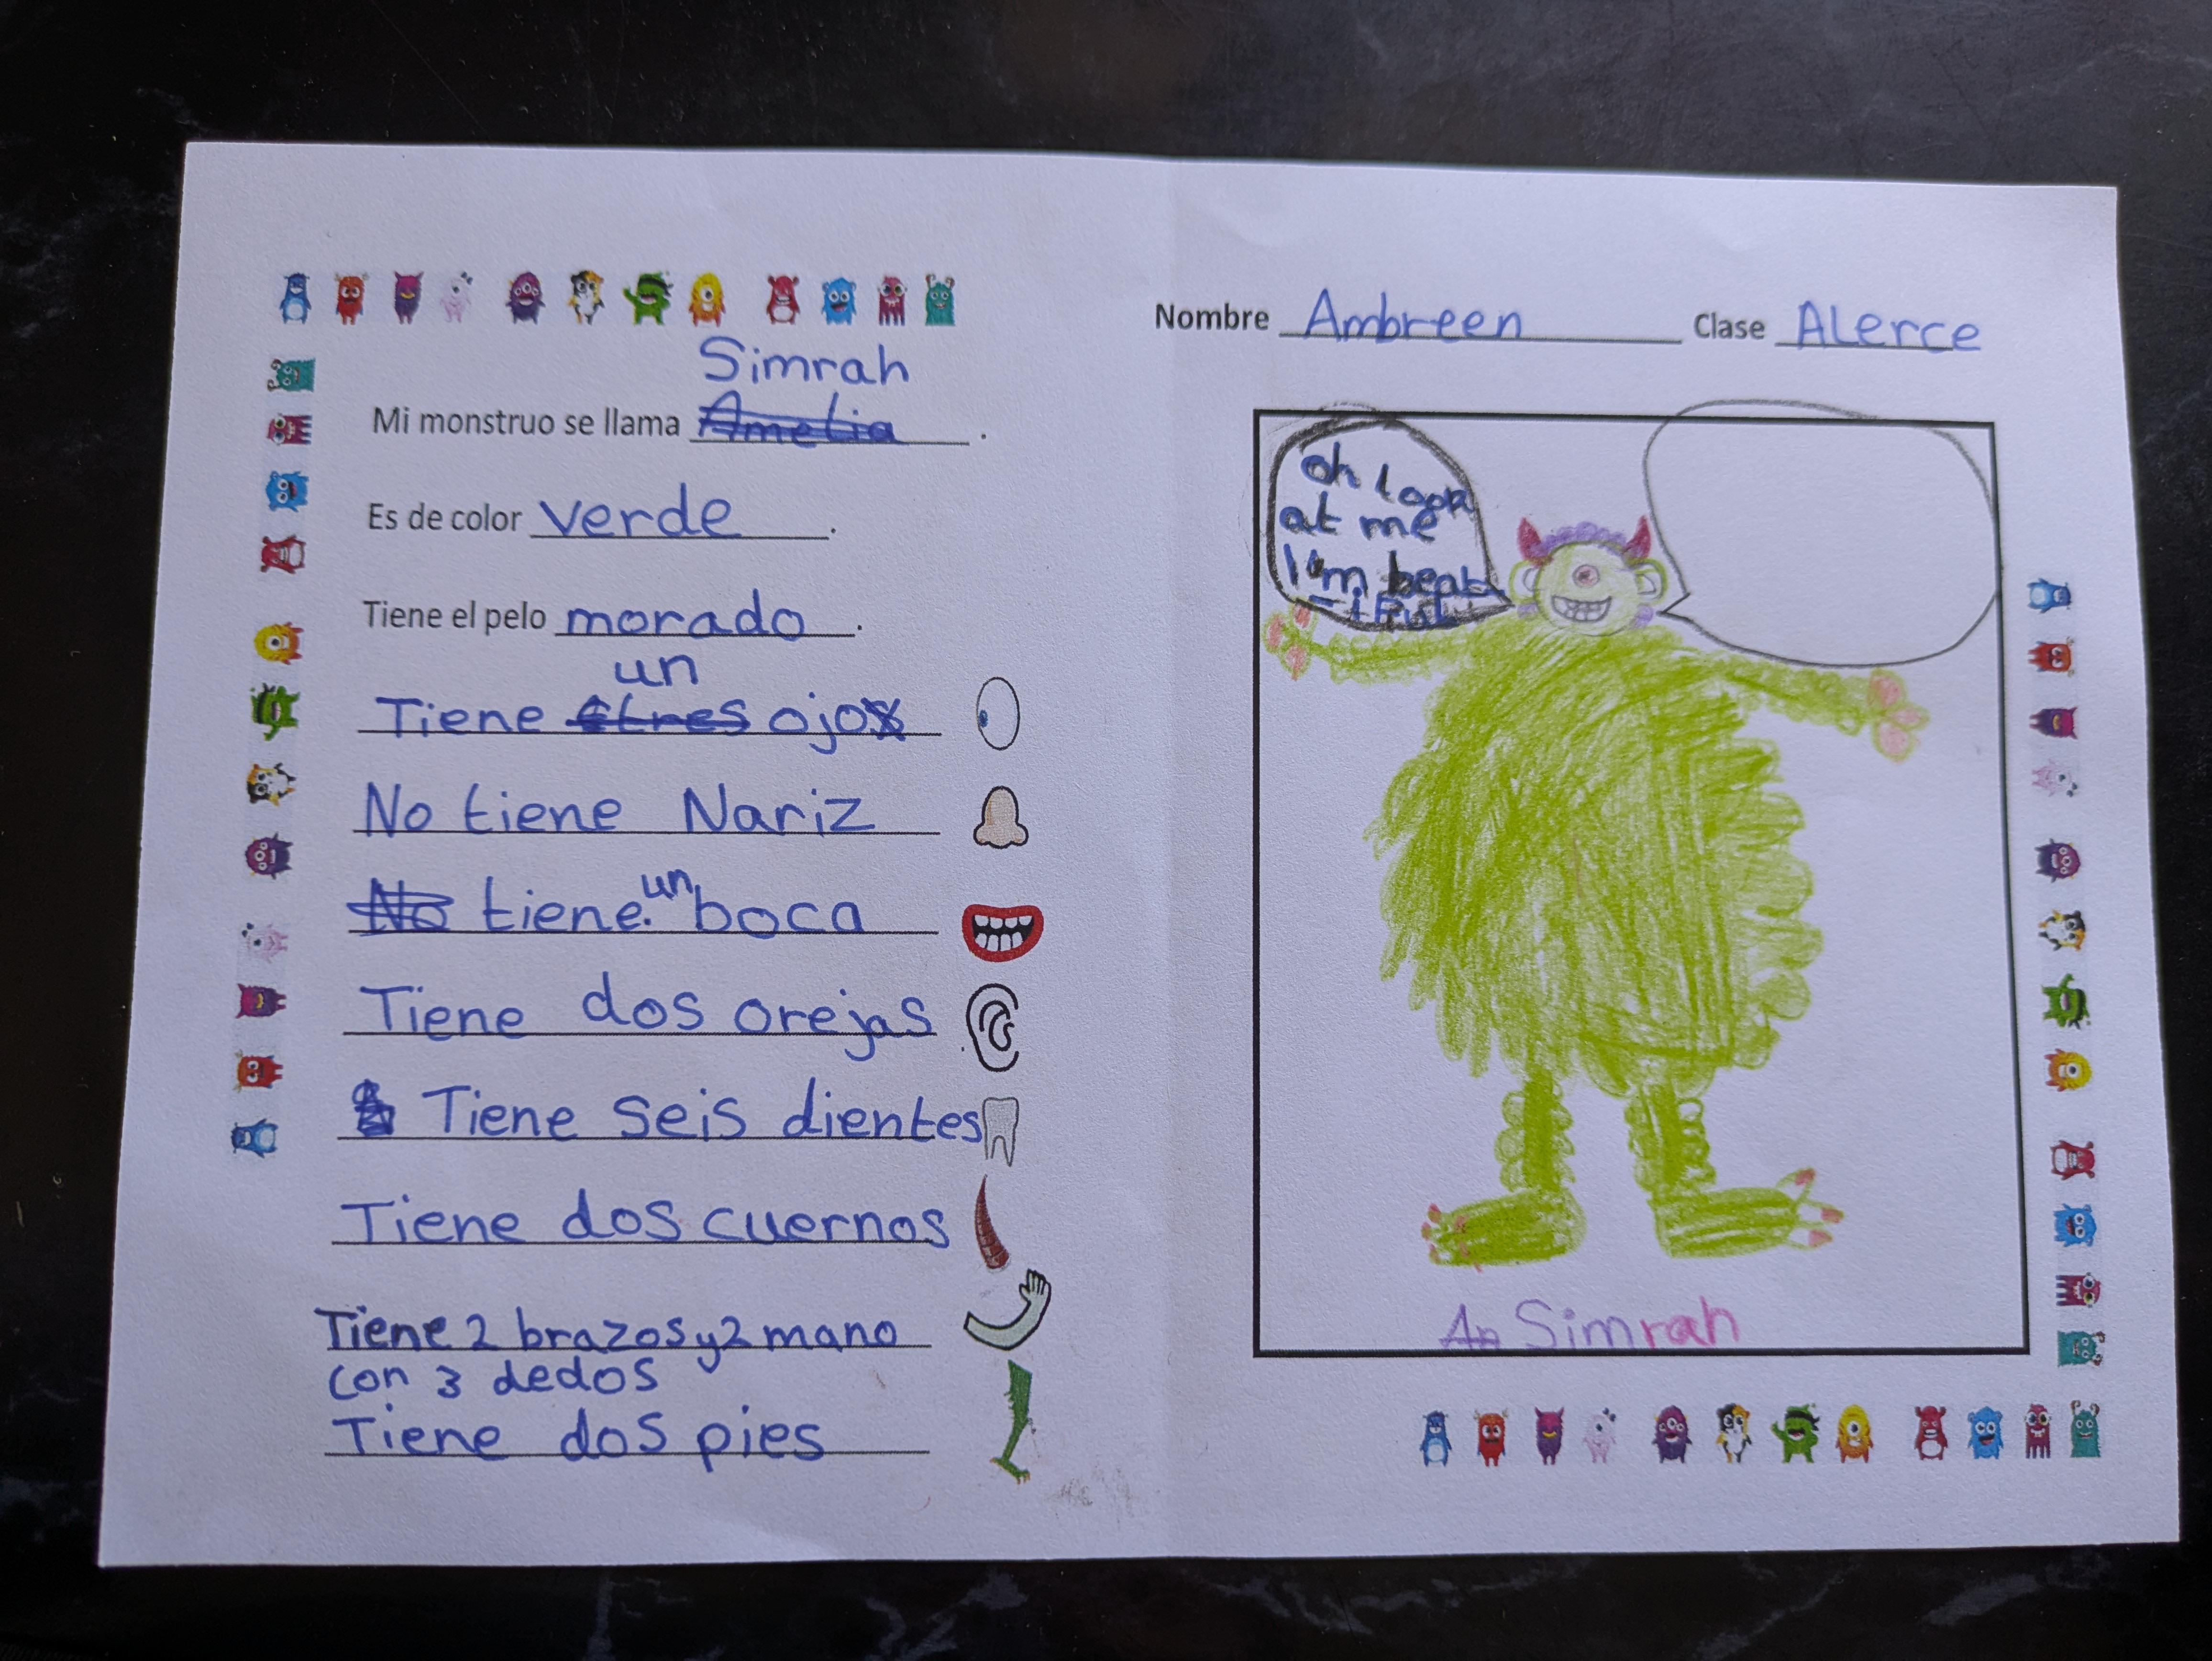 Simrah
Mi monstruo se llama Amelia.
Es de color verde.
Tiene el pelo morado.
un
Tiene tres ojos
No tiene Nariz
No tiene. un boca
Tiene dos orejas
Tiene seis dientes
Tiene dos cuernos
Tiene 2 brazos y 2 mano
con 3 dedos
Tiene dos pies
Nombre Ambreen Clase Alerce
oh look
at me
I'm beat
-iful
An Simrah